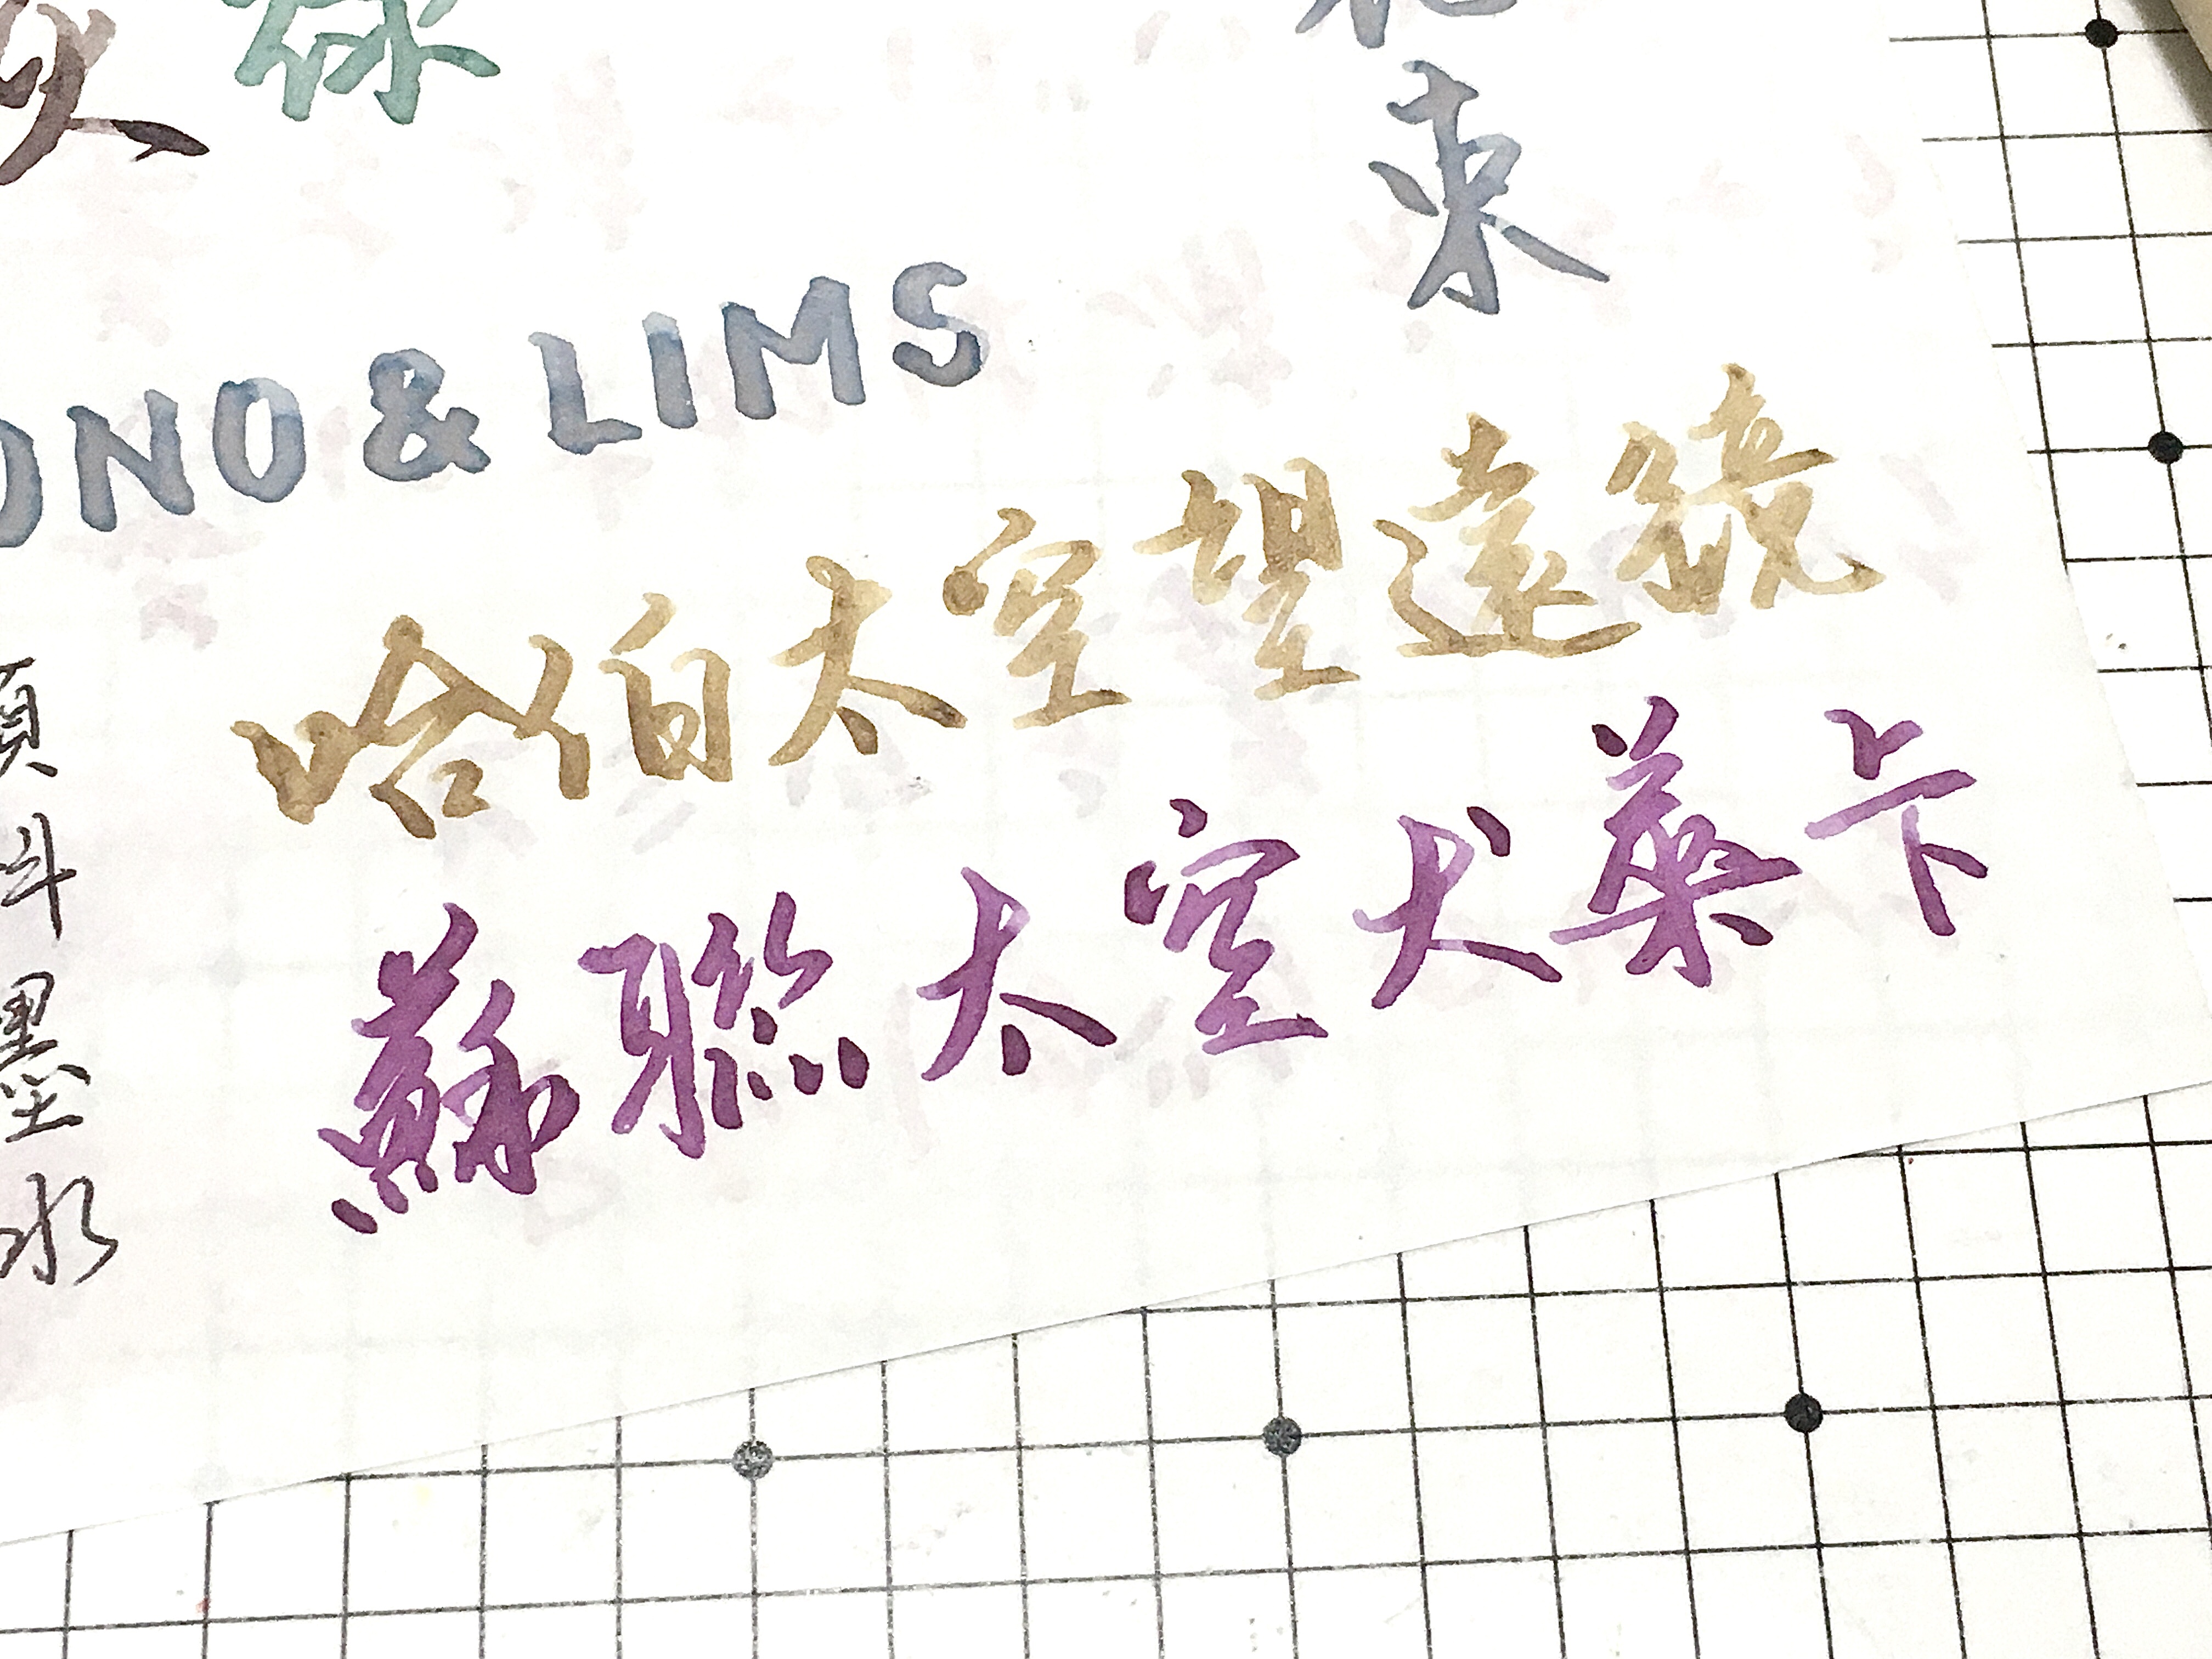 綠
束
ONO & LIMS
哈伯太空望遠鏡
蘇聯太空犬萊卡
料墨水